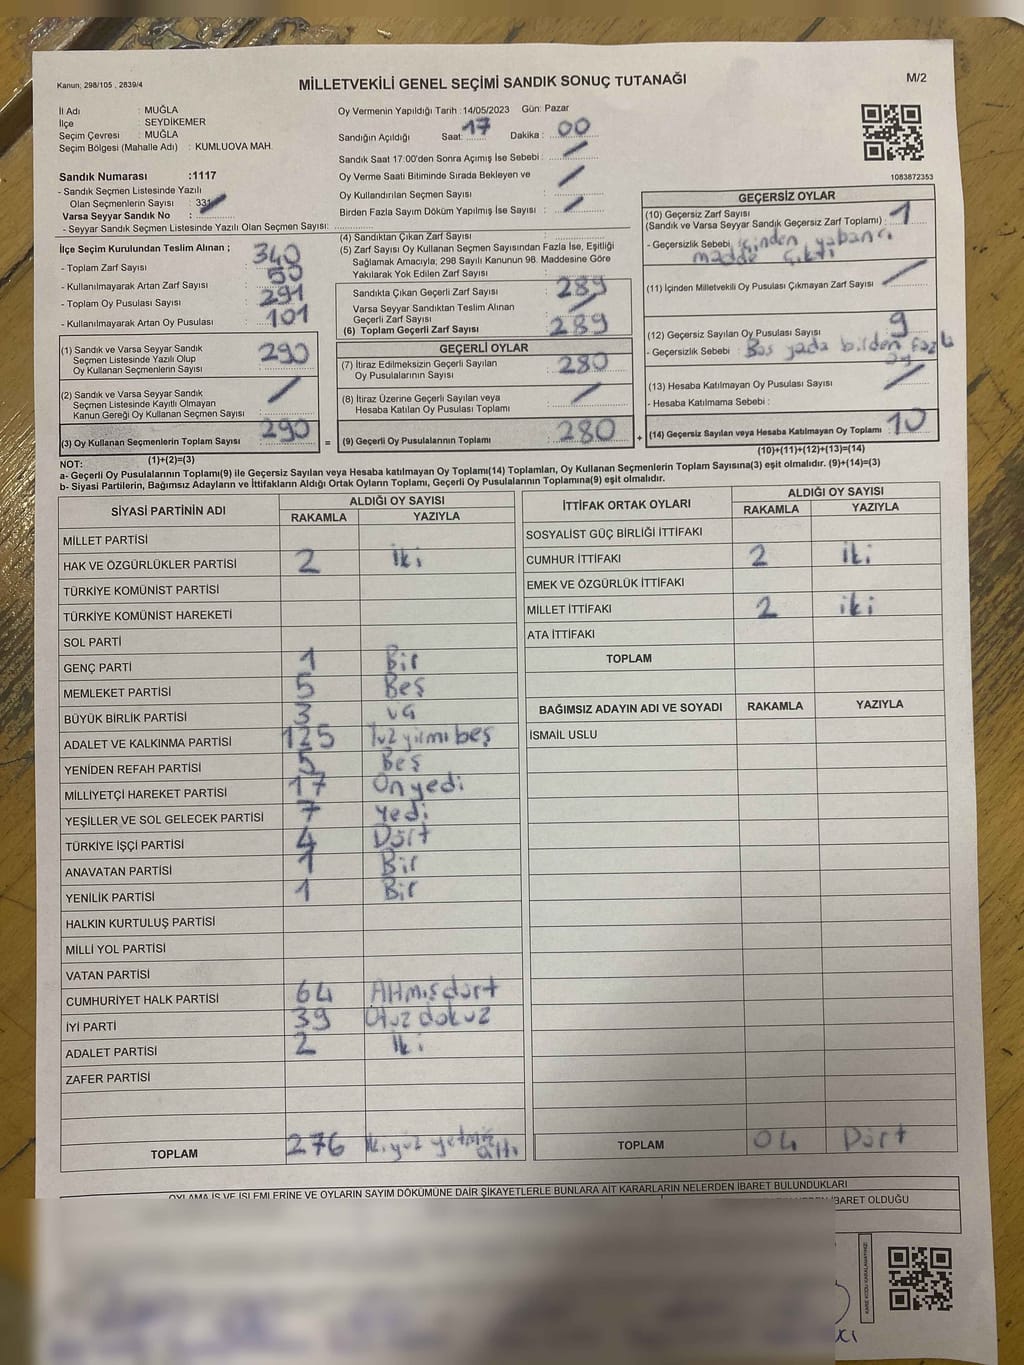 Kanun; 298/105 , 2839/4
MİLLETVEKİLİ GENEL SEÇİMİ SANDIK SONUÇ TUTANAĞI
M/2
İl Adı : MUĞLA
İlçe : SEYDİKEMER
Seçim Çevresi : MUĞLA
Seçim Bölgesi (Mahalle Adı) : KUMLUOVA MAH.
Sandık Numarası :1117
- Sandık Seçmen Listesinde Yazılı
Olan Seçmenlerin Sayısı : 331
Varsa Seyyar Sandık No :
- Seyyar Sandık Seçmen Listesinde Yazılı Olan Seçmen Sayısı:
Oy Vermenin Yapıldığı Tarih :14/05/2023 Gün: Pazar
Sandığın Açıldığı Saat: 17 Dakika : 00
Sandık Saat 17:00'den Sonra Açımış İse Sebebi :
Oy Verme Saati Bitiminde Sırada Bekleyen ve
Oy Kullandırılan Seçmen Sayısı :
Birden Fazla Sayım Döküm Yapılmış İse Sayısı :
1083872353
İlçe Seçim Kurulundan Teslim Alınan ;
- Toplam Zarf Sayısı : 340
- Kullanılmayarak Artan Zarf Sayısı : 50
- Toplam Oy Pusulası Sayısı : 291
- Kullanılmayarak Artan Oy Pusulası : 101
(1) Sandık ve Varsa Seyyar Sandık
Seçmen Listesinde Yazılı Olup
Oy Kullanan Seçmenlerin Sayısı : 290
(2) Sandık ve Varsa Seyyar Sandık
Seçmen Listesinde Kayıtlı Olmayan
Kanun Gereği Oy Kullanan Seçmen Sayısı :
(3) Oy Kullanan Seçmenlerin Toplam Sayısı : 290 =
(1)+(2)=(3)
(4) Sandıktan Çıkan Zarf Sayısı :
(5) Zarf Sayısı Oy Kullanan Seçmen Sayısından Fazla İse, Eşitliği
Sağlamak Amacıyla; 298 Sayılı Kanunun 98. Maddesine Göre
Yakılarak Yok Edilen Zarf Sayısı :
Sandıkta Çıkan Geçerli Zarf Sayısı : 289
Varsa Seyyar Sandıktan Teslim Alınan
Geçerli Zarf Sayısı :
(6) Toplam Geçerli Zarf Sayısı : 289
GEÇERLİ OYLAR
(7) İtiraz Edilmeksizin Geçerli Sayılan
Oy Pusulalarının Sayısı : 280
(8) İtiraz Üzerine Geçerli Sayılan veya
Hesaba Katılan Oy Pusulası Toplamı :
(9) Geçerli Oy Pusulalarının Toplamı : 280 +
GEÇERSİZ OYLAR
(10) Geçersiz Zarf Sayısı
(Sandık ve Varsa Seyyar Sandık Geçersiz Zarf Toplamı) : 1
- Geçersizlik Sebebi : içinden yabancı
madde çıktı
(11) İçinden Milletvekili Oy Pusulası Çıkmayan Zarf Sayısı :
(12) Geçersiz Sayılan Oy Pusulası Sayısı : 9
- Geçersizlik Sebebi : Boş yada birden fazla
oy
(13) Hesaba Katılmayan Oy Pusulası Sayısı :
- Hesaba Katılmama Sebebi :
(14) Geçersiz Sayılan veya Hesaba Katılmayan Oy Toplamı : 10
(10)+(11)+(12)+(13)=(14)
NOT:
a- Geçerli Oy Pusulalarının Toplamı(9) ile Geçersiz Sayılan veya Hesaba katılmayan Oy Toplamı(14) Toplamları, Oy Kullanan Seçmenlerin Toplam Sayısına(3) eşit olmalıdır. (9)+(14)=(3)
b- Siyasi Partilerin, Bağımsız Adayların ve İttifakların Aldığı Ortak Oyların Toplamı, Geçerli Oy Pusulalarının Toplamına(9) eşit olmalıdır.
SİYASİ PARTİNİN ADI ALDIĞI OY SAYISI
RAKAMLA YAZIYLA
MİLLET PARTİSİ
HAK VE ÖZGÜRLÜKLER PARTİSİ 2 İki
TÜRKİYE KOMÜNİST PARTİSİ
TÜRKİYE KOMÜNİST HAREKETİ
SOL PARTİ
GENÇ PARTİ 1 Bir
MEMLEKET PARTİSİ 5 Beş
BÜYÜK BİRLİK PARTİSİ 3 üç
ADALET VE KALKINMA PARTİSİ 125 Yüz yirmi beş
YENİDEN REFAH PARTİSİ 5 Beş
MİLLİYETÇİ HAREKET PARTİSİ 17 On yedi
YEŞİLLER VE SOL GELECEK PARTİSİ 7 Yedi
TÜRKİYE İŞÇİ PARTİSİ 4 Dört
ANAVATAN PARTİSİ 1 Bir
YENİLİK PARTİSİ 1 Bir
HALKIN KURTULUŞ PARTİSİ
MİLLİ YOL PARTİSİ
VATAN PARTİSİ
CUMHURİYET HALK PARTİSİ 64 Altmış dört
İYİ PARTİ 39 Otuz dokuz
ADALET PARTİSİ 2 İki
ZAFER PARTİSİ
TOPLAM 276 iki yüz yetmiş
altı
İTTİFAK ORTAK OYLARI ALDIĞI OY SAYISI
RAKAMLA YAZIYLA
SOSYALİST GÜÇ BİRLİĞİ İTTİFAKI
CUMHUR İTTİFAKI 2 iki
EMEK VE ÖZGÜRLÜK İTTİFAKI
MİLLET İTTİFAKI 2 iki
ATA İTTİFAKI
TOPLAM
BAĞIMSIZ ADAYIN ADI VE SOYADI RAKAMLA YAZIYLA
İSMAİL USLU
TOPLAM 04 Dört
OYLAMA İŞ VE İŞLEMLERİNE VE OYLARIN SAYIM DÖKÜMÜNE DAİR ŞİKAYETLERLE BUNLARA AİT KARARLARIN NELERDEN İBARET BULUNDUKLARI
İBARET OLDUĞU
KARE KODU KARALAMAYINIZ!